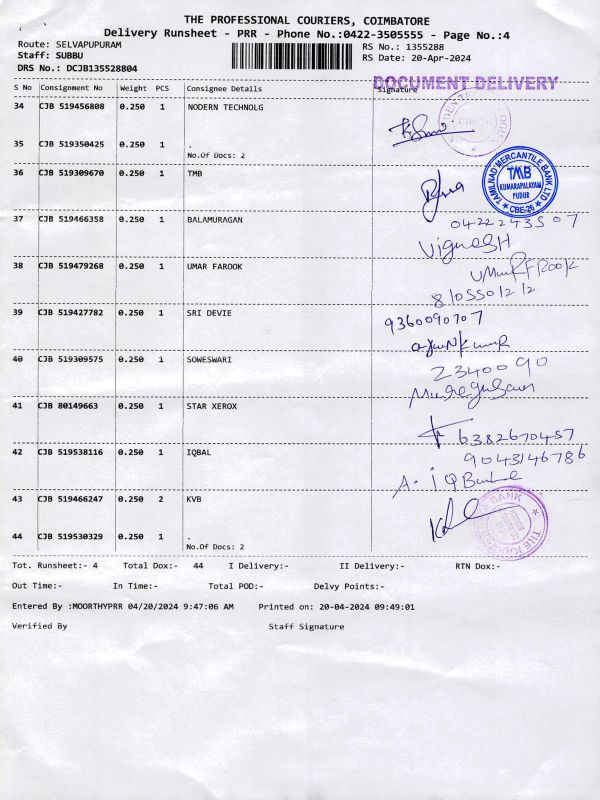 THE PROFESSIONAL COURIERS, COIMBATORE
Delivery Runsheet - PRR - Phone No.:0422-3505555 - Page No.:4
Route: SELVAPUPURAM RS No.: 1355288
Staff: SUBBU RS Date: 20-Apr-2024
DRS No.: DCJB135528804
DOCUMENT DELIVERY
S No Consignment No Weight PCS Consignee Details Signature
34 CJB 519456808 0.250 1 NODERN TECHNOLG
35 CJB 519350425 0.250 1 .
No.Of Docs: 2
36 CJB 519309670 0.250 1 TMB
TAMILNAD MERCANTILE BANK LTD
TMB
KUMARAPALAYAM
PUDUR
CBE-26
37 CJB 519466358 0.250 1 BALAMURAGAN
VIGNESH
38 CJB 519479268 0.250 1 UMAR FAROOK
UMURFROOK
39 CJB 519427782 0.250 1 SRI DEVIE
9360090707
40 CJB 519309575 0.250 1 SOWESWARI
2340090
41 CJB 80149663 0.250 1 STAR XEROX
6382670457
42 CJB 519538116 0.250 1 IQBAL
9043146786
43 CJB 519466247 0.250 2 KVB
44 CJB 519530329 0.250 1 .
No.Of Docs: 2
Tot. Runsheet:- 4 Total Dox:- 44 I Delivery:- II Delivery:- RTN Dox:-
Out Time:- In Time:- Total POD:- Delvy Points:-
Entered By :MOORTHYPRR 04/20/2024 9:47:06 AM Printed on: 20-04-2024 09:49:01
Verified By Staff Signature